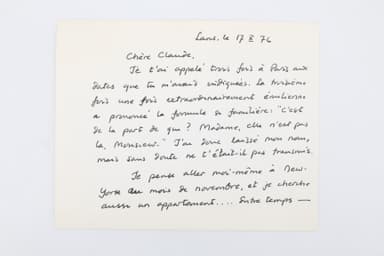 Lans, le 17 X 76
Chère Claude,
Je t'ai appelé trois fois à Paris aux
dates que tu m'avais indiquées. La troisième
fois une voix extraordinairement
a prononcé la formule si familière : "c'est
de la part de qui ? Madame, elle n'est pas
là, Monsieur." J'ai donc laissé mon nom,
mais sans doute ne t'était-il pas transmis.
Je pense aller moi-même à New-
York au mois de novembre, et je cherche
aussi un appartement.... Entre temps —